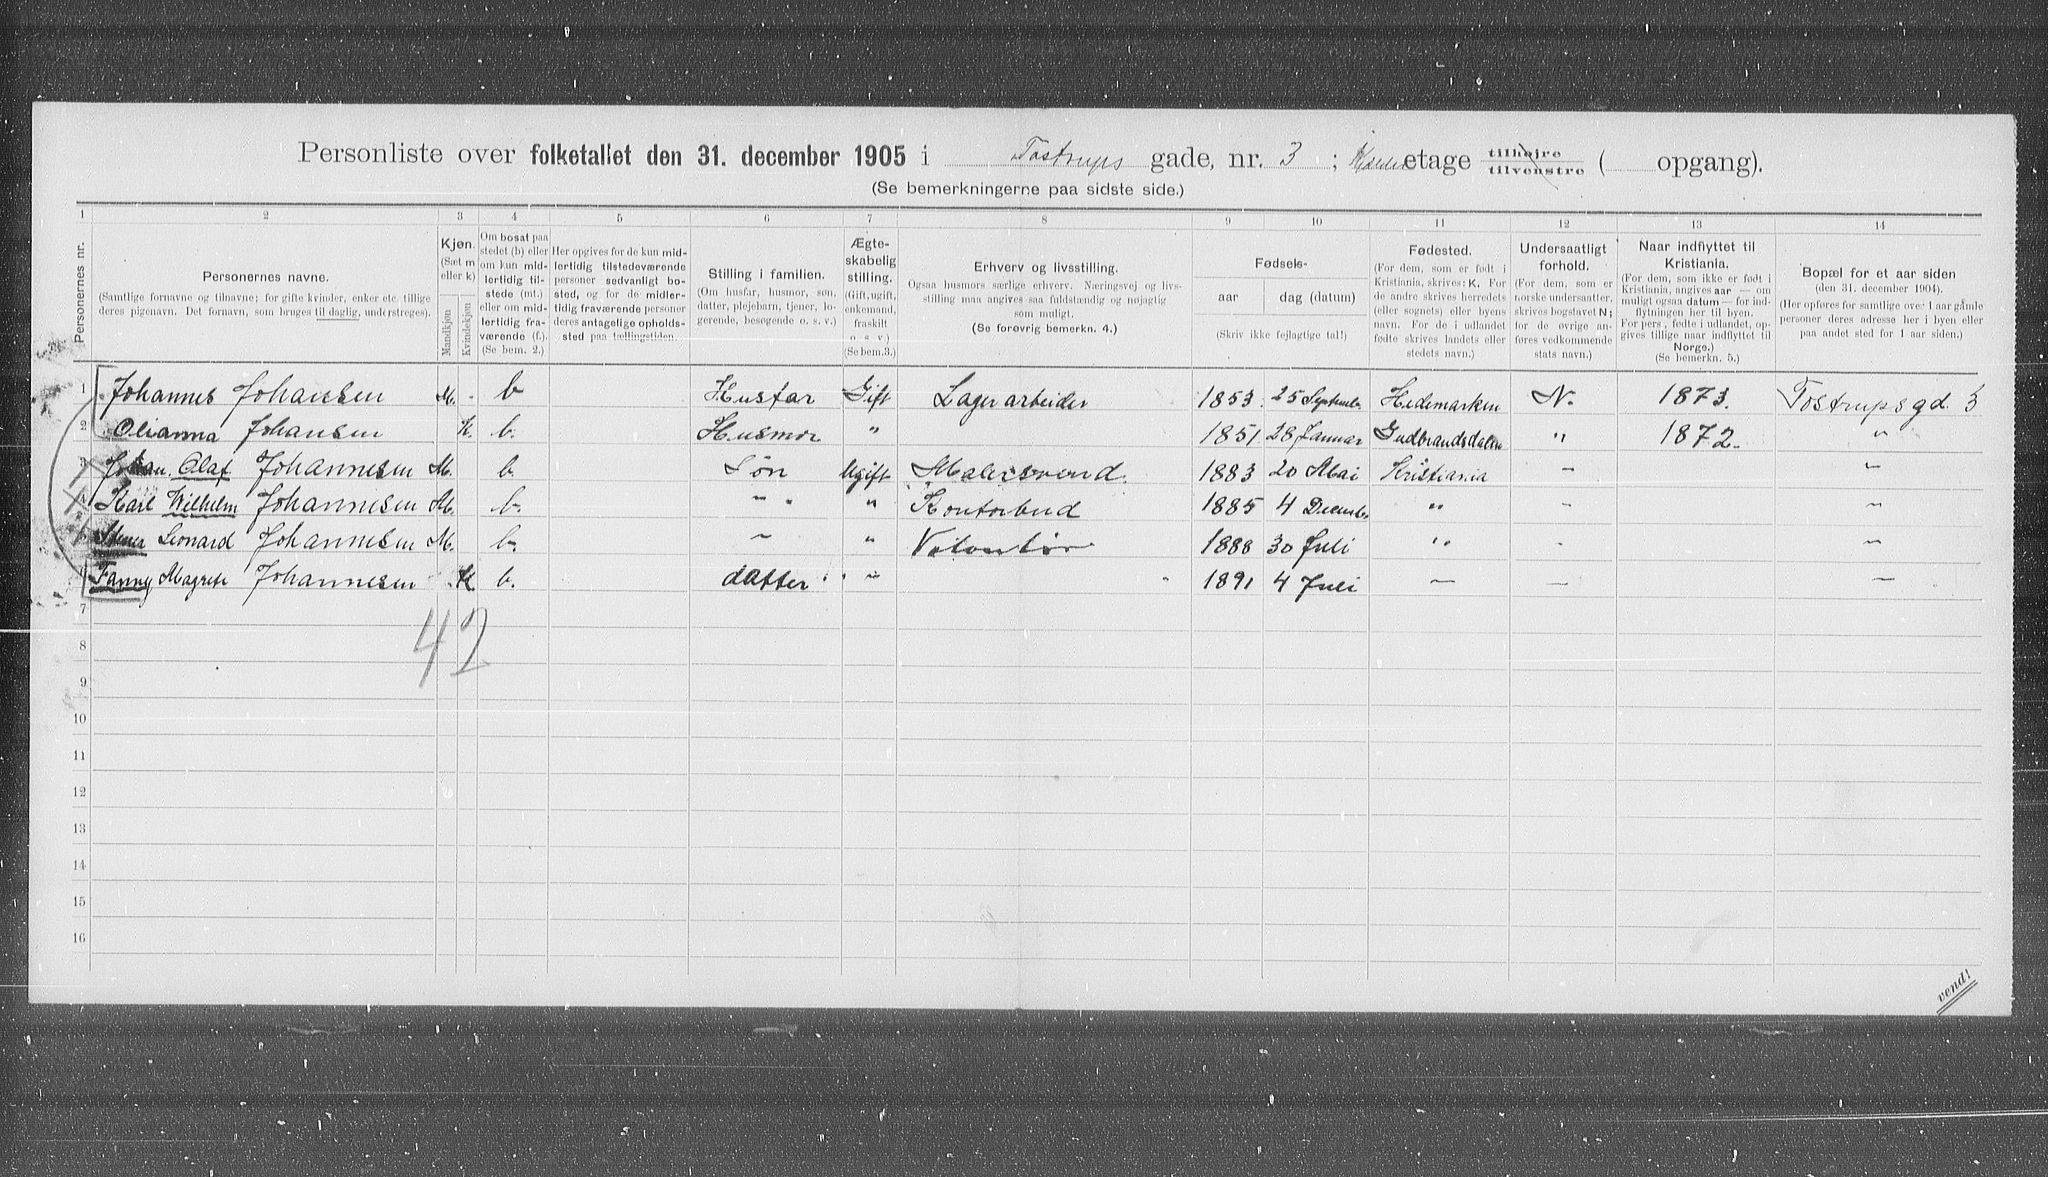 Personliste over folketallet den 31. december 1905 i Tostrups gade, nr. 3 ; etage tilhøjre tilvenstre ( opgang).
(Se bemerkningerne paa sidste side.)
1 2 3 4 5 6 7 8 9 10 11 12 13 14
Personernes nr.
Personernes navne.
(Samtlige fornavne og tilnavne; for gifte kvinder, enker etc. tillige
deres pigenavn. Det fornavn, som bruges til daglig, understreges).
Kjøn.
(Sæt m
eller k)
Mandkjøn
Kvindekjøn
Om bosat paa
stedet (b) eller
om kun mid-
lertidig til-
stede (mt.)
eller om mid-
lertidig fra-
værende (f.).
(Se bem. 2.)
Her opgives for de kun mid-
lertidig tilstedeværende
personer sedvanligt bo-
sted, og for de midler-
tidig fraværende personer
deres antagelige opholds-
sted paa tællingstiden.
Stilling i familien.
(Om husfar, husmor, søn,
datter, plejebarn, tjener, lo-
gerende, besøgende o. s. v.)
Ægte-
skabelig
stilling.
(Gift, ugift,
enkemand,
fraskilt
o. s. v.)
(Se bem.3.)
Erhverv og livsstilling.
Ogsaa husmors særlige erhverv. Næringsvej og livs-
stilling maa angives saa fuldstændig og nøjagtig
som muligt.
(Se forøvrig bemerkn. 4.)
Fødsels-
aar dag (datum)
(Skriv ikke fejlagtige tal!)
Fødested.
(For dem, som er født i
Kristiania, skrives: K. For
de andre skrives herredets
(eller sognets) eller byens
navn. For de i udlandet
fødte skrives landets eller
stedets navn.)
Undersaatligt
forhold.
(For dem, som er
norske undersaatter,
skrives bogstavet N;
for de øvrige an-
føres vedkommende
stats navn.)
Naar indflyttet til
Kristiania.
(For dem, som ikke er født i
Kristiania, angives aar — om
muligt ogsaa datum — for ind-
flytningen her til byen.
For pers., fødte i udlandet, op-
gives tillige naar indflyttet til
Norge.)
(Se bemerkn. 5.)
Bopæl for et aar siden
(den 31. december 1904).
(Her opføres for samtlige over 1 aar gamle
personer deres adresse her i byen eller
paa andet sted for 1 aar siden.)
1 Johannes Johansen M. b Husfar Gift Lagerarbeider 1853. 25 Septemb. Hedemarken N. 1873. Tostrupsgd. 3
2 Olianna Johansen K. b. Husmor " 1851 28 Januar Gudbrandsdalen " 1872. "
3 Johan. Olaf Johannesen M. b. Søn Ugift Malersvend. 1883 20 Mai Kristiania " "
4 Karl Wilhelm Johannesen M. b. " " " Kontorbud 1885 4 Decemb. " "
Leonard Johannesen M. b. " " Volontør 1888 30 Juli " - "
Fanny Magrete Johannesen K b. datter " 1891 4 Juli — — —
42
7
8
9
10
11
12
13
14
15
16
vend!